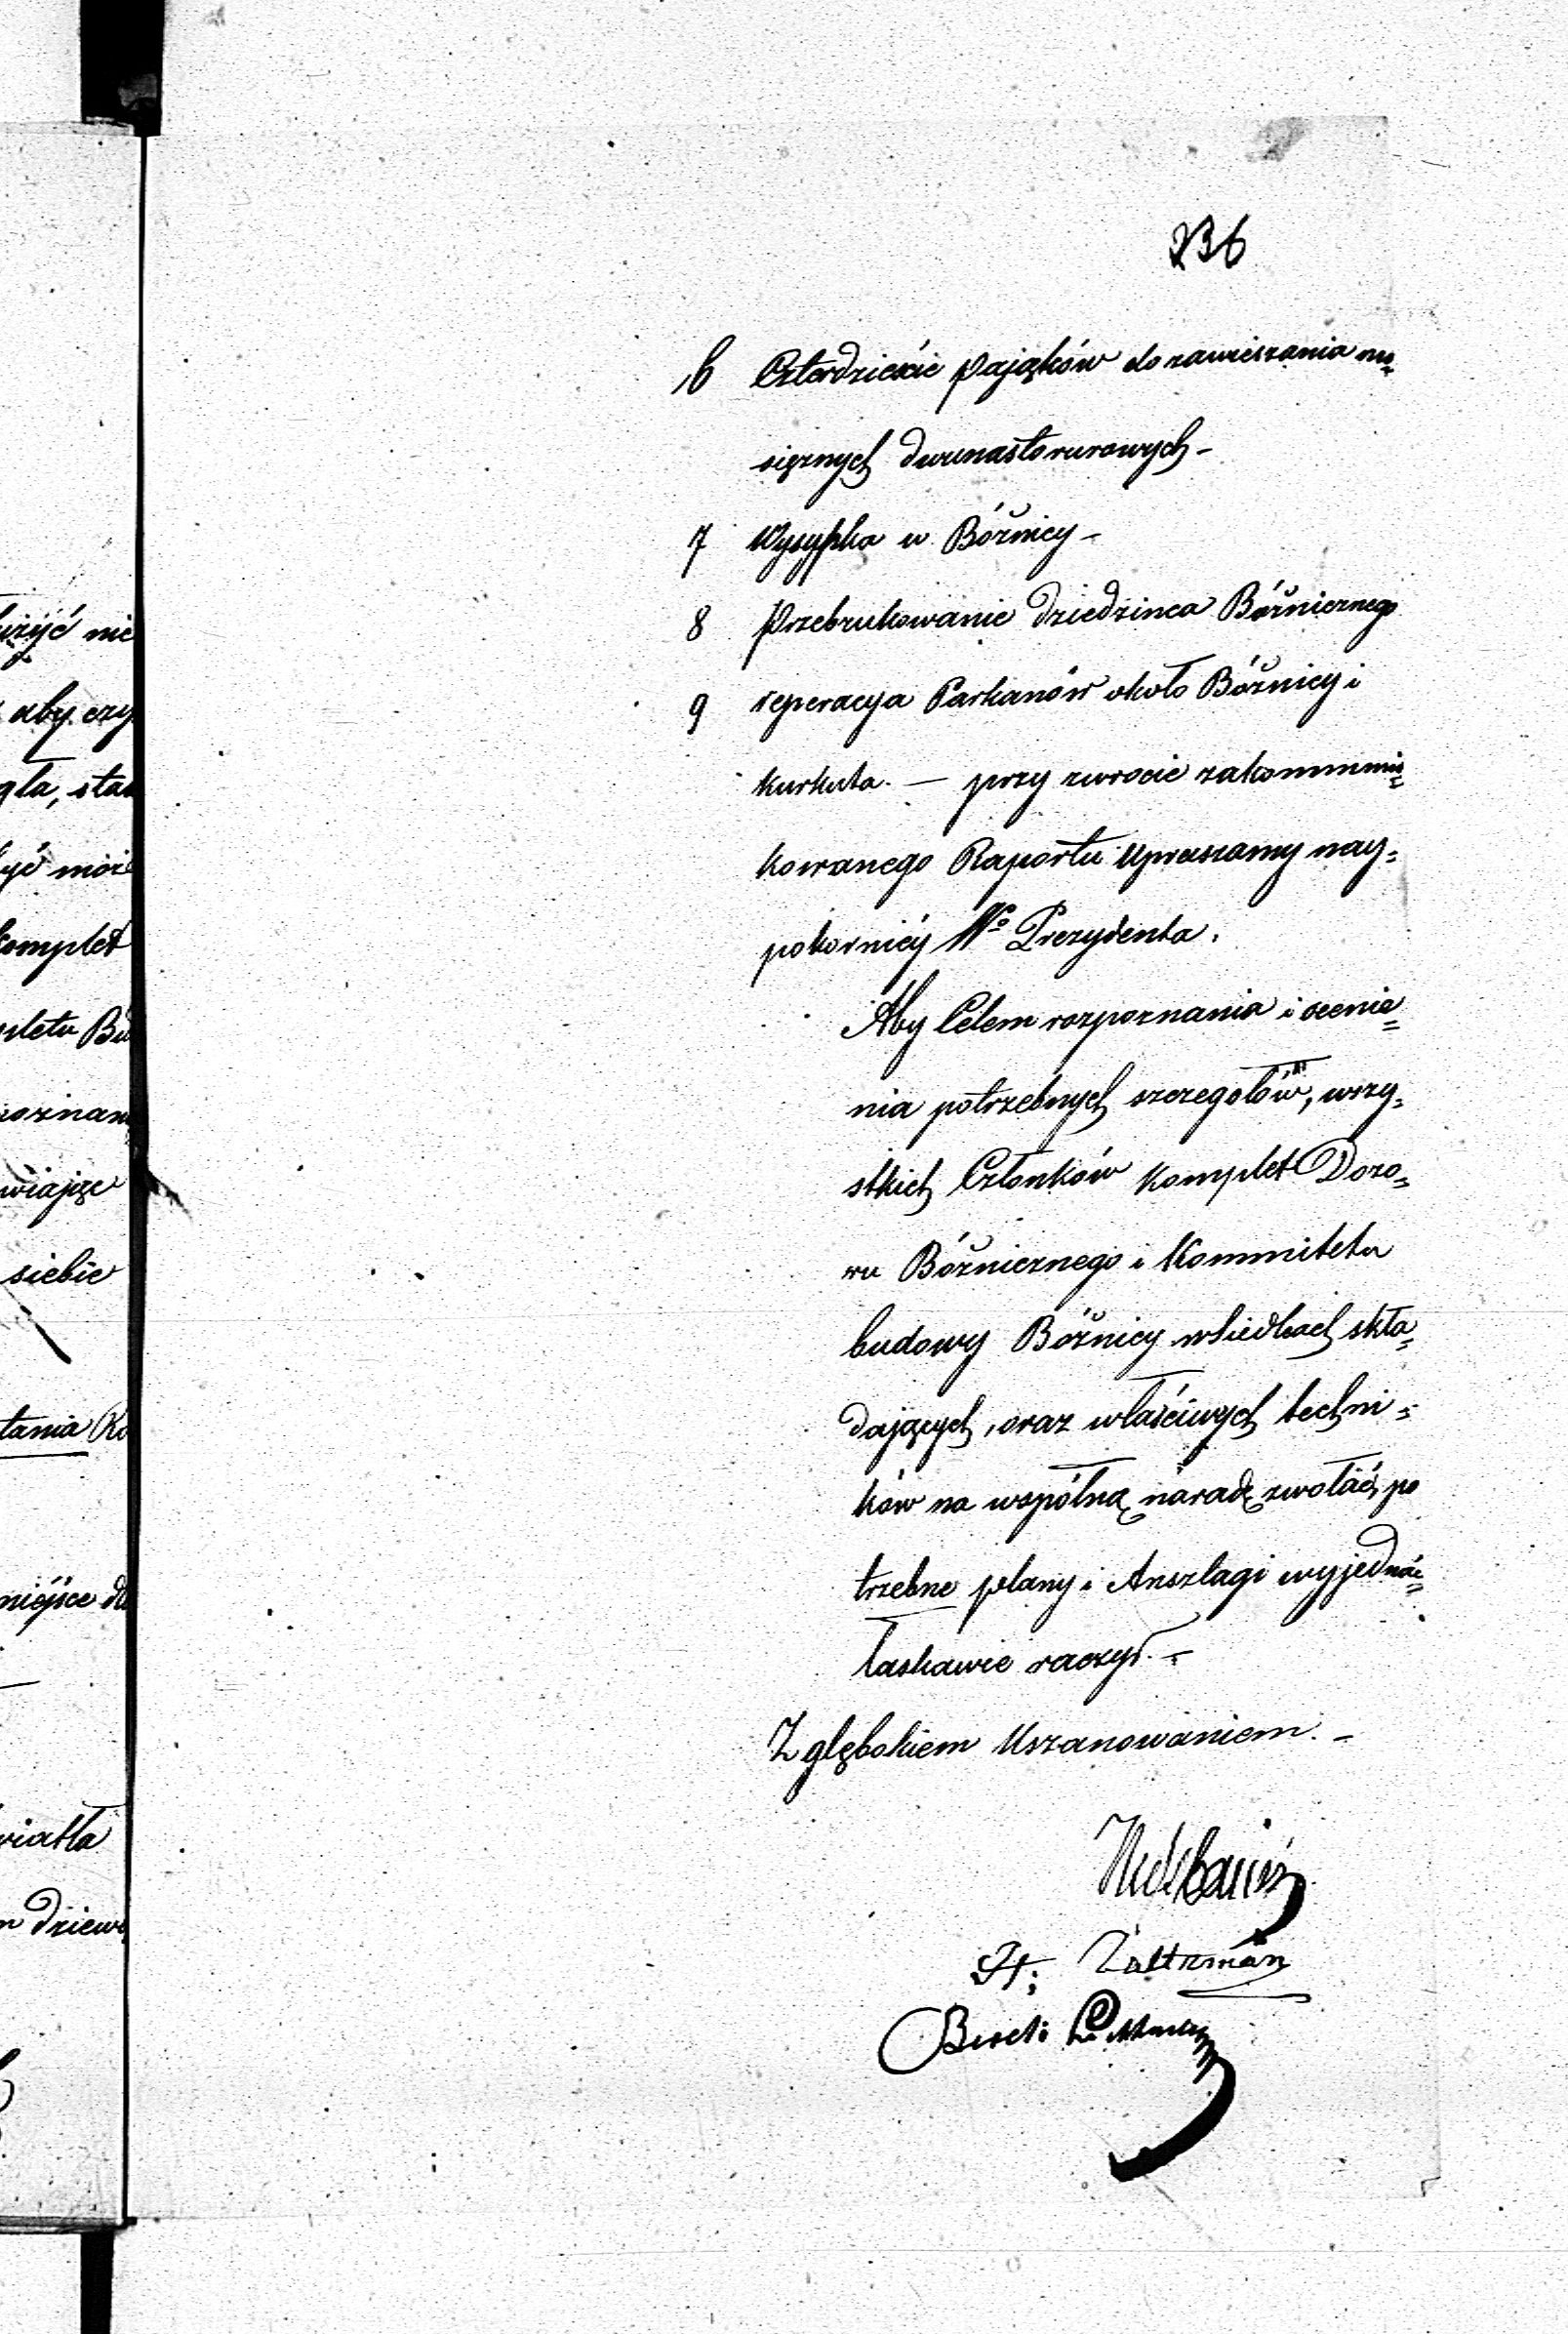 236
6 Czterdzieście pająków do zawieszania mo=
siężnych dwunastorurowych –
7 Wysypka w Bóżnicy –
8 Przebrukowanie dziedzinca Bóżnicznego
9 reperacya Parkanów około Bóżnicy i
kurkuta. — przy zwrocie zakommuni=
kowanego Raportu upraszamy nay=
pokorniéy Wo Prezydenta.
Aby Celem rozpoznania i ocenie=
nia potrzebnych szczegołów, wszy=
stkich Członków komplet Dozo=
ru Bóżnicznego i Kommitetu
budowy Bóżnicy w Siedlcach skła=
dających, oraz właściwych techni=
ków na wspólną naradę zwołać, po
trzebne plany i Anszlagi wyjednać=
łaskawie raczył. –
Z głębokiem Uszanowaniem. –
H: Zaltzman
użyć nie
aby czy
gła, sta
być moż
komplet
pletu Bu
poznan
wiając
siebie
łania Ko
miéjsce d
wiatła
m dziew